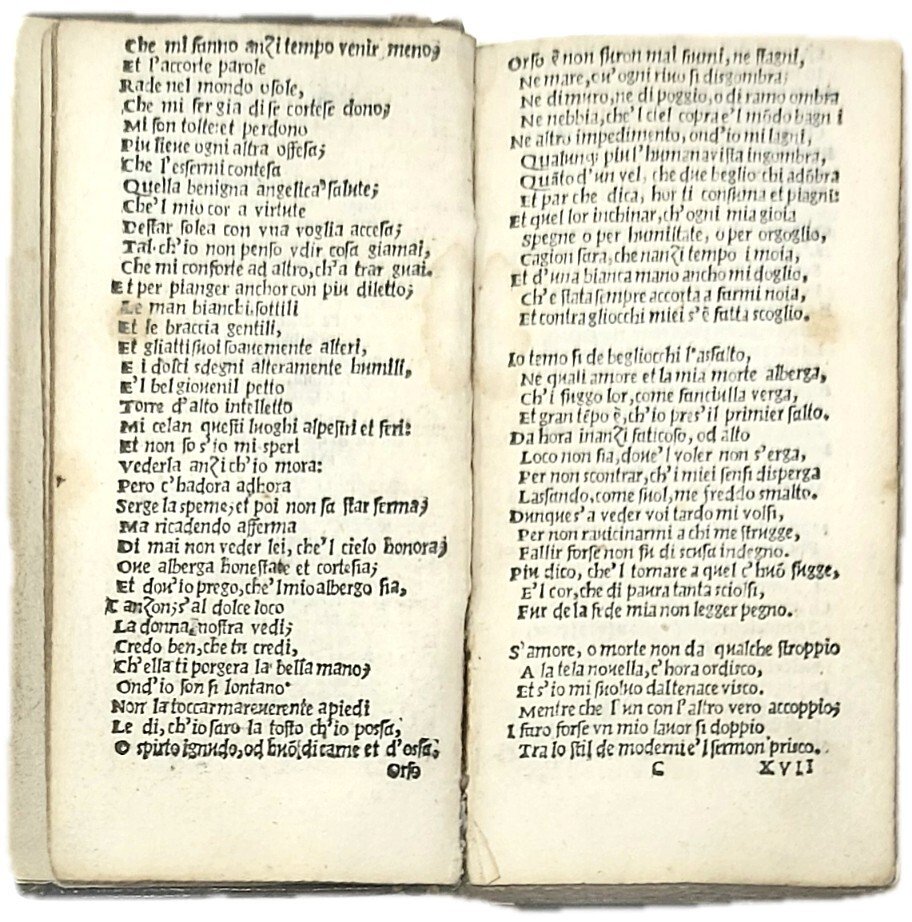 Che mi fanno anzi tempo venir meno;
Et l'accorte parole
Rade nel mondo o sole,
Che mi fer gia di se cortese dono;
Mi son tolte: et perdono
Piu lieve ogni altra offesa;
Che l'essermi contesa
Quella benigna angelica salute;
Che'l mio cor a virtute
Destar solea con vna voglia accesa;
Tal ch'io non penso vdir cosa giamai,
Che mi conforte ad altro, ch'a trar guai.
Et per pianger anchor con piu diletto;
Le man bianchi sottili
Et le braccia gentili,
Et gliatti suoi soauemente alteri,
E i dolci sdegni alteramente humili,
E'l bel giouenil petto
Torre d'alto intelletto
Mi celan questi luoghi alpestri et feri:
Et non so s'io mi speri
Vederla anzi ch'io mora:
Pero c'hadora adhora
Serge la speme; et poi non sa star ferma;
Ma ricadendo afferma
Di mai non veder lei, che'l cielo honora;
Oue alberga honestate et cortesia;
Et dou'io prego, che'l mio albergo sia,
Canzon; s'al dolce loco
La donna nostra vedi;
Credo ben, che tu credi,
Ch'ella ti porgera la bella mano;
Ond'io son si lontano
Non la toccar ma reuerente a piedi
Le di, ch'io saro la tosto ch'io possa,
O spirto ignudo, od huõ, di carne et d'ossa,
Orso
Orso ẽ non furon mai fiumi, ne stagni,
Ne mare, ou' ogni riuo si disgombra;
Ne di muro, ne di poggio, o di ramo ombra
Ne nebbia, che'l ciel copra e'l mõdo bagni
Ne altro impedimento, ond'io mi lagni,
Qualunq; piu l'humana vista ingombra,
Quãto d'un vel, che due begliocchi adõbra
Et par che dica, hor ti consuma et piagni:
Et quel lor inchinar, ch'ogni mia gioia
Spegne o per humiltate, o per orgoglio,
Cagion sara, che nanzi tempo i moia,
Et d'una bianca mano ancho mi doglio,
Ch'e stata sempre accorta a farmi noia,
Et contra gliocchi miei s'ẽ fatta scoglio.
Io temo si de begliocchi l'assalto,
Ne quali amore et la mia morte alberga,
Ch'i fuggo lor, come fanciulla verga,
Et gran tẽpo ẽ, ch'io pres'il primier salto.
Da hora inanzi faticoso, od alto
Loco non sia, doue'l voler non s'erga,
Per non scontrar, ch'i miei sensi disperga
Lassando, come suol, me freddo smalto.
Dunque s'a veder voi tardo mi volsi,
Per non rauicinarmi a chi me strugge,
Fallir forse non fu di scusa indegno.
Piu dico, che'l tornare a quel c'huõ fugge,
E'l cor, che di paura tanta sciolsi,
Fur de la fede mia non legger pegno.
S'amore, o morte non da qualche stroppio
A la tela nouella, c'hora ordisco,
Et s'io mi suoluo dal tenace visco.
Mentre che l'un con l'altro vero accoppio;
I faro forse vn mio lauor si doppio
Tra lo stil de moderni e'l sermon prisco.
C XVII